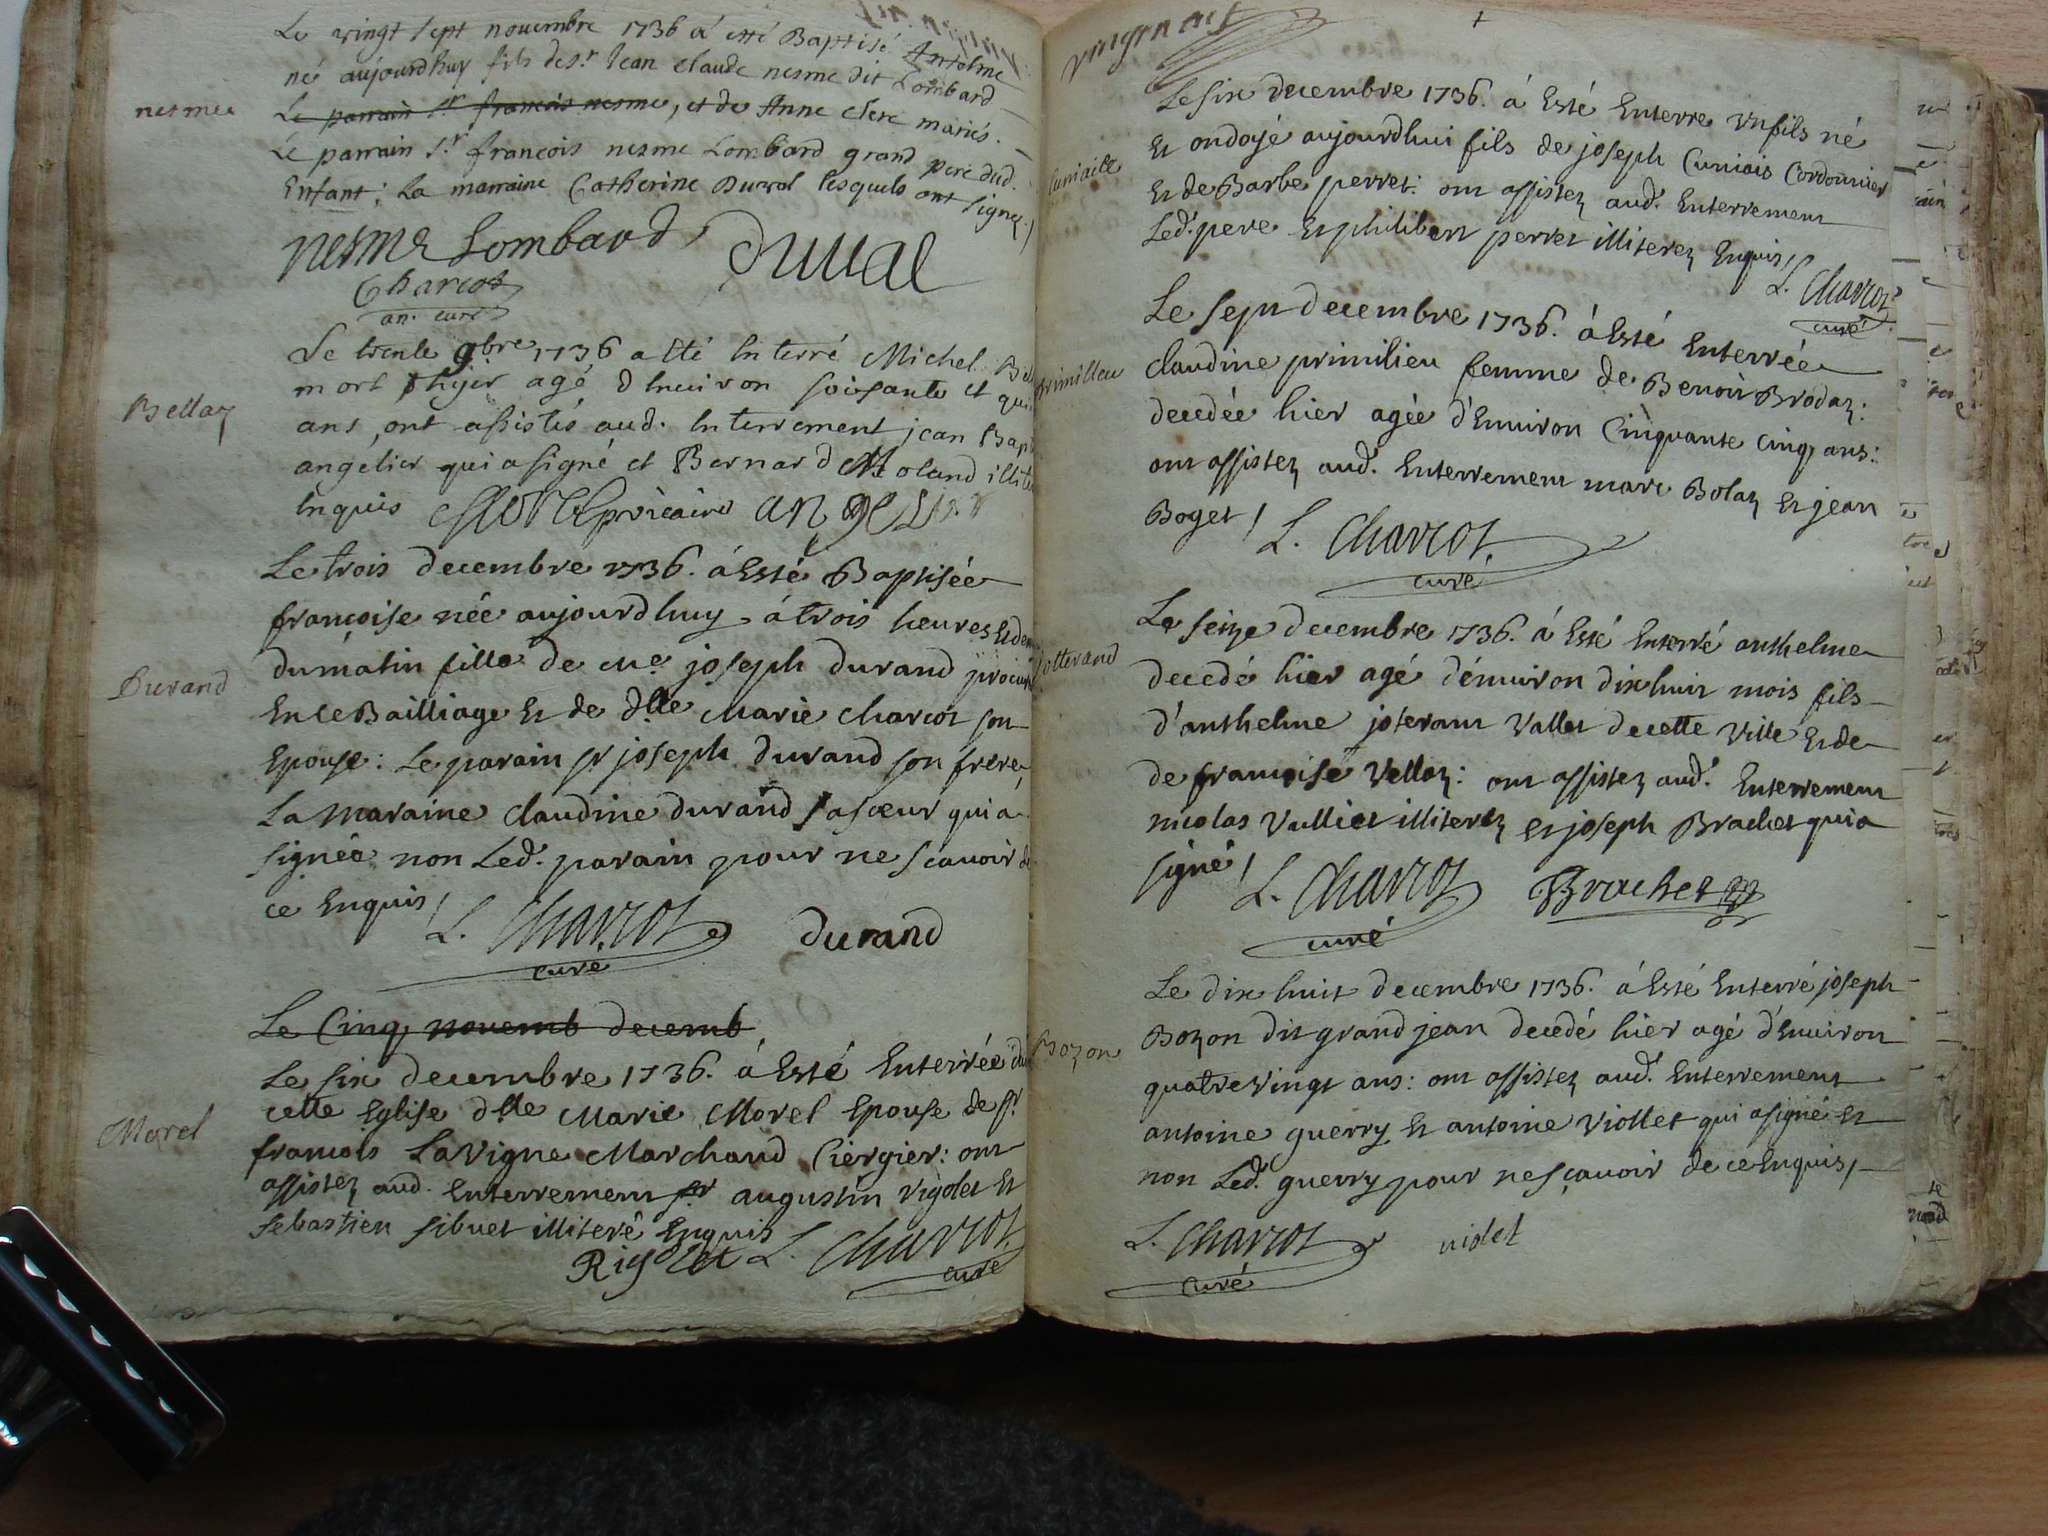 Le vingt sept novembre 1736 a été Baptisé Antelme
né aujourdhuy fils de sr. Jean claude nesme dit Lombard
nesme
Le parrain sr francois nesme, et de Anne clerc mariés.
Le parrain sr. francois nesme Lombard grand pere dud.
Enfant; La marraine Catherine Duval lesquels ont signez
nesme Lombard Duual
Charcot
an. curé
Le trente 9bre 1736 a été Interré Michel
mort hyer agé d'Inuiron soisante et
Bellaz
ans, ont assistés aud. Interrement jean Bapt
angelier qui a signé et Bernard Moland
Inquis angelier
Le trois decembre 1736. á Esté Baptisée
françoise née aujourdhuy á trois heures Et
du matin fille de Me joseph Durand procur
Durand
En ce Bailliage Et de Dlle Marie Charcot son
Epouse: Le parain sr joseph Durand son frere
La Maraine Claudine durand sa soeur qui a
signée non Led. parain pour ne scauoir de
ce Enquis /
L. Charcot durand
curé
Le Cinq novemb decemb
Le six decembre 1736. á Esté Enterrée
cette Eglise dlle Marie Morel Epouse de sr
Morel
francois Lavigne Marchand Ciergier: ont
assistez aud. Enterrement sr augustin rigolet Et
sebastien sibuet illiteré Enquis
Rigolet L. Charcot
curé
vingt n
Le six decembre 1736. á Esté Enterre un fils né
Et ondoyé aujourdhui fils de joseph Cuniais Cordonnier
Et de Barbe perret: ont assistez aud. Enterrement
Led. pere Et philibert perret illiterez Enquis /
L. Charcot
curé
Le sept decembre 1736. á Esté Enterrée
Claudine primilieu femme de Benoit Brodaz:
decedée hier agée d'Enuiron Cinquante cinq ans:
ont assistez aud. Enterrement marc Bolaz Et jean
Boget /
L. Charcot
curé
Le seize decembre 1736. á Esté Enterré anthelme
decedé hier agé d'enuiron dix huit mois fils
d'anthelme joterant Vallet de cette Ville Et de
de françoise Vellaz: ont assistez aud. Enterrement
nicolas Vulliet illiterez Et joseph Brachet qui a
signé /
L. Charcot Brachet
curé
Le dix huit decembre 1736. á Esté Enterré joseph
Bozon
Bozon dit grand jean decedé hier agé d'Enuiron
quatre vingt ans: ont assistez aud. Enterrement
antoine guerry Et antoine Viollet qui a signé Et
non Led. guerry pour ne sçauoir de ce Enquis /
L. Charcot violet
curé